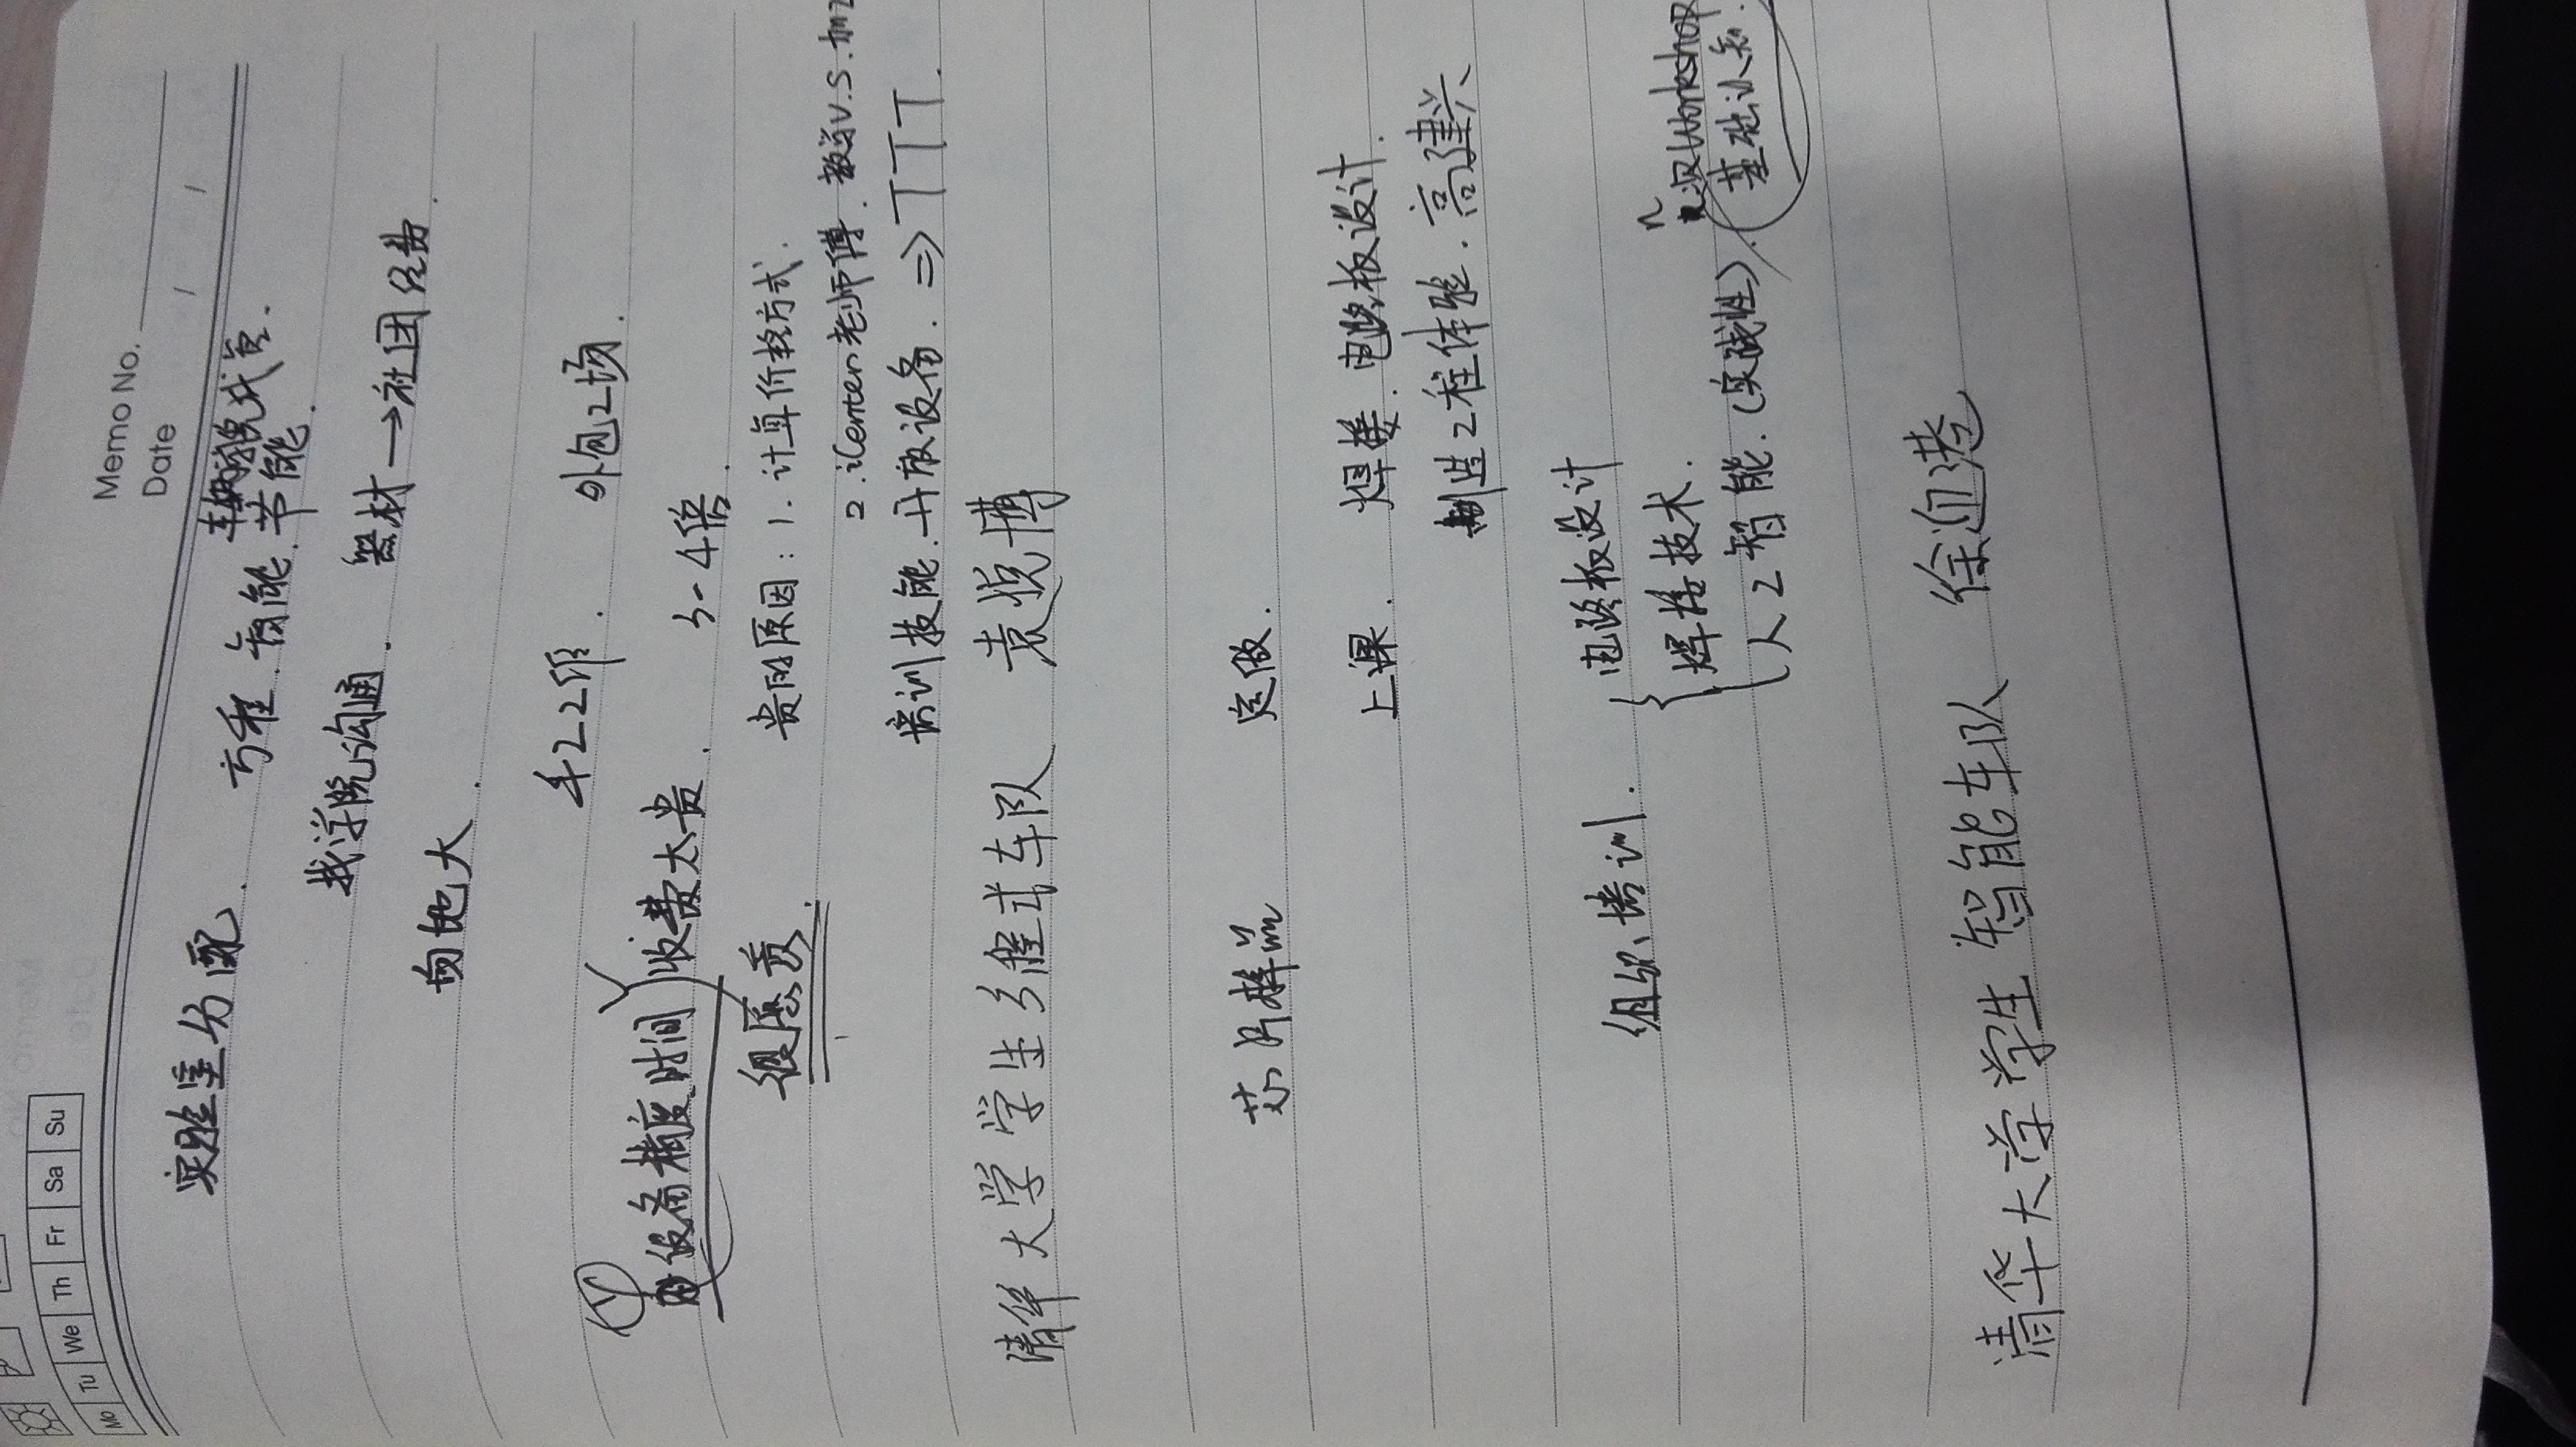 Mo Tu We Th Fr Sa Su
Memo No.
Date / /
实验室分配. 方程.智能.节能.
车辆 成员.
找学院沟通. 器材→社团经费.
场地大.
手工工作. 外包工场.
设备精度时间 收费太贵. 3-4倍.
很愿意. 贵的原因: 1. 计算价格方式.
2. iCenter老师傅. 教学V.S.加工
培训技能.开放设备. ⇒TTT.
清华大学学生方程式车队 袁悦博
芯片样品 定做.
上课. 焊接. 电路板设计.
制造工程体验. 高建兴
组织培训. 电路板设计
焊接技术. n次Workshop
人工智能.(实战性). 基础认知.
清华大学学生智能车队 徐迎港